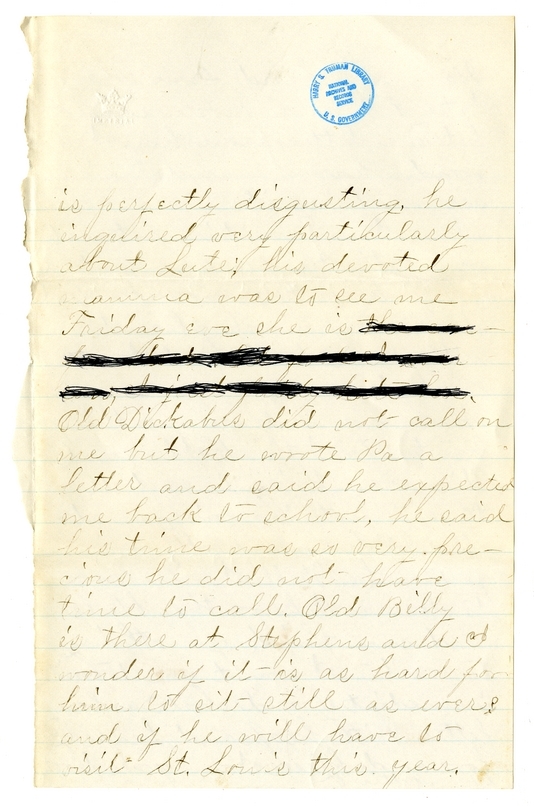 HARRY S. TRUMAN LIBRARY
NATIONAL
ARCHIVES AND
RECORDS
SERVICE
U. S. GOVERNMENT
is perfectly disgusting, he
inquired very particularly
about Lutie, his devoted
mamma was to see me
Friday eve she is
Old Dickabus did not call on
me but he wrote Pa a
letter and said he expected
me back to school, he said
his time was so very pre-
cious he did not have
time to call. Old Billy
is there at Stephens and I
wonder if it is as hard for
him to sit still as ever?
and if he will have to
visit St. Louis this year.